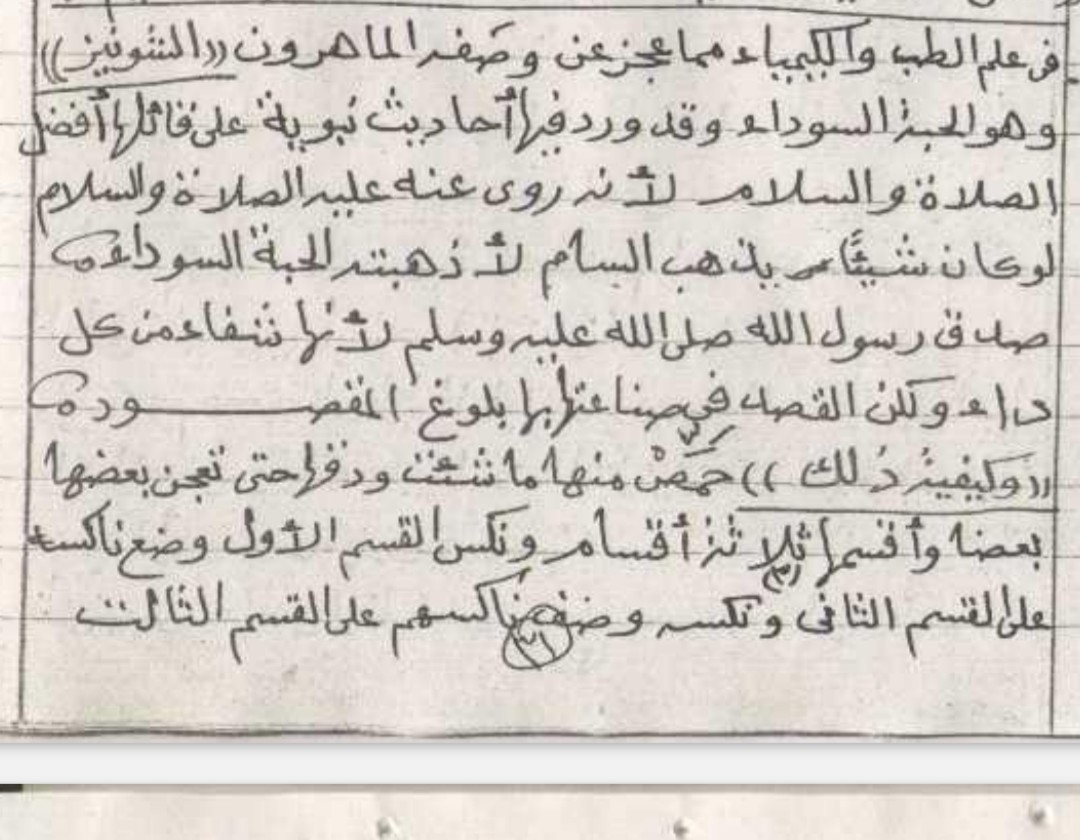 فى علم الطب والكيمياء مما عجز عن وصفه الماهرون ((الشونيز))
وهو الحبة السوداء وقد ورد فيها أحاديث نبوية على قائلها أفضل
الصلاة والسلام لأنه روى عنه عليه الصلاة والسلام
لوكان شيئًا يذهب السام لأذهبته الحبة السوداء
صدق رسول الله صلى الله عليه وسلم لأنها شفاء من كل
داء ولكن القصد في صناعتها بها بلوغ المقصود
((وكيفية ذلك)) حَمِّصْ منها ما شئت ودقها حتى تعجن بعضها
بعضا وأقسمها ثلاثة (٣) أقسام ونكس القسم الأول وضع ناكسه
على القسم الثانى ونكسه وضف ناكسهم على القسم الثالث